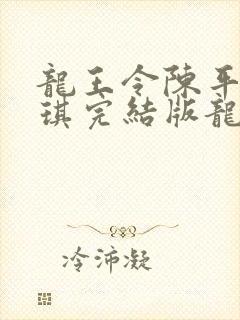 龍王令陳平
琪完結版龍
冷沛凝